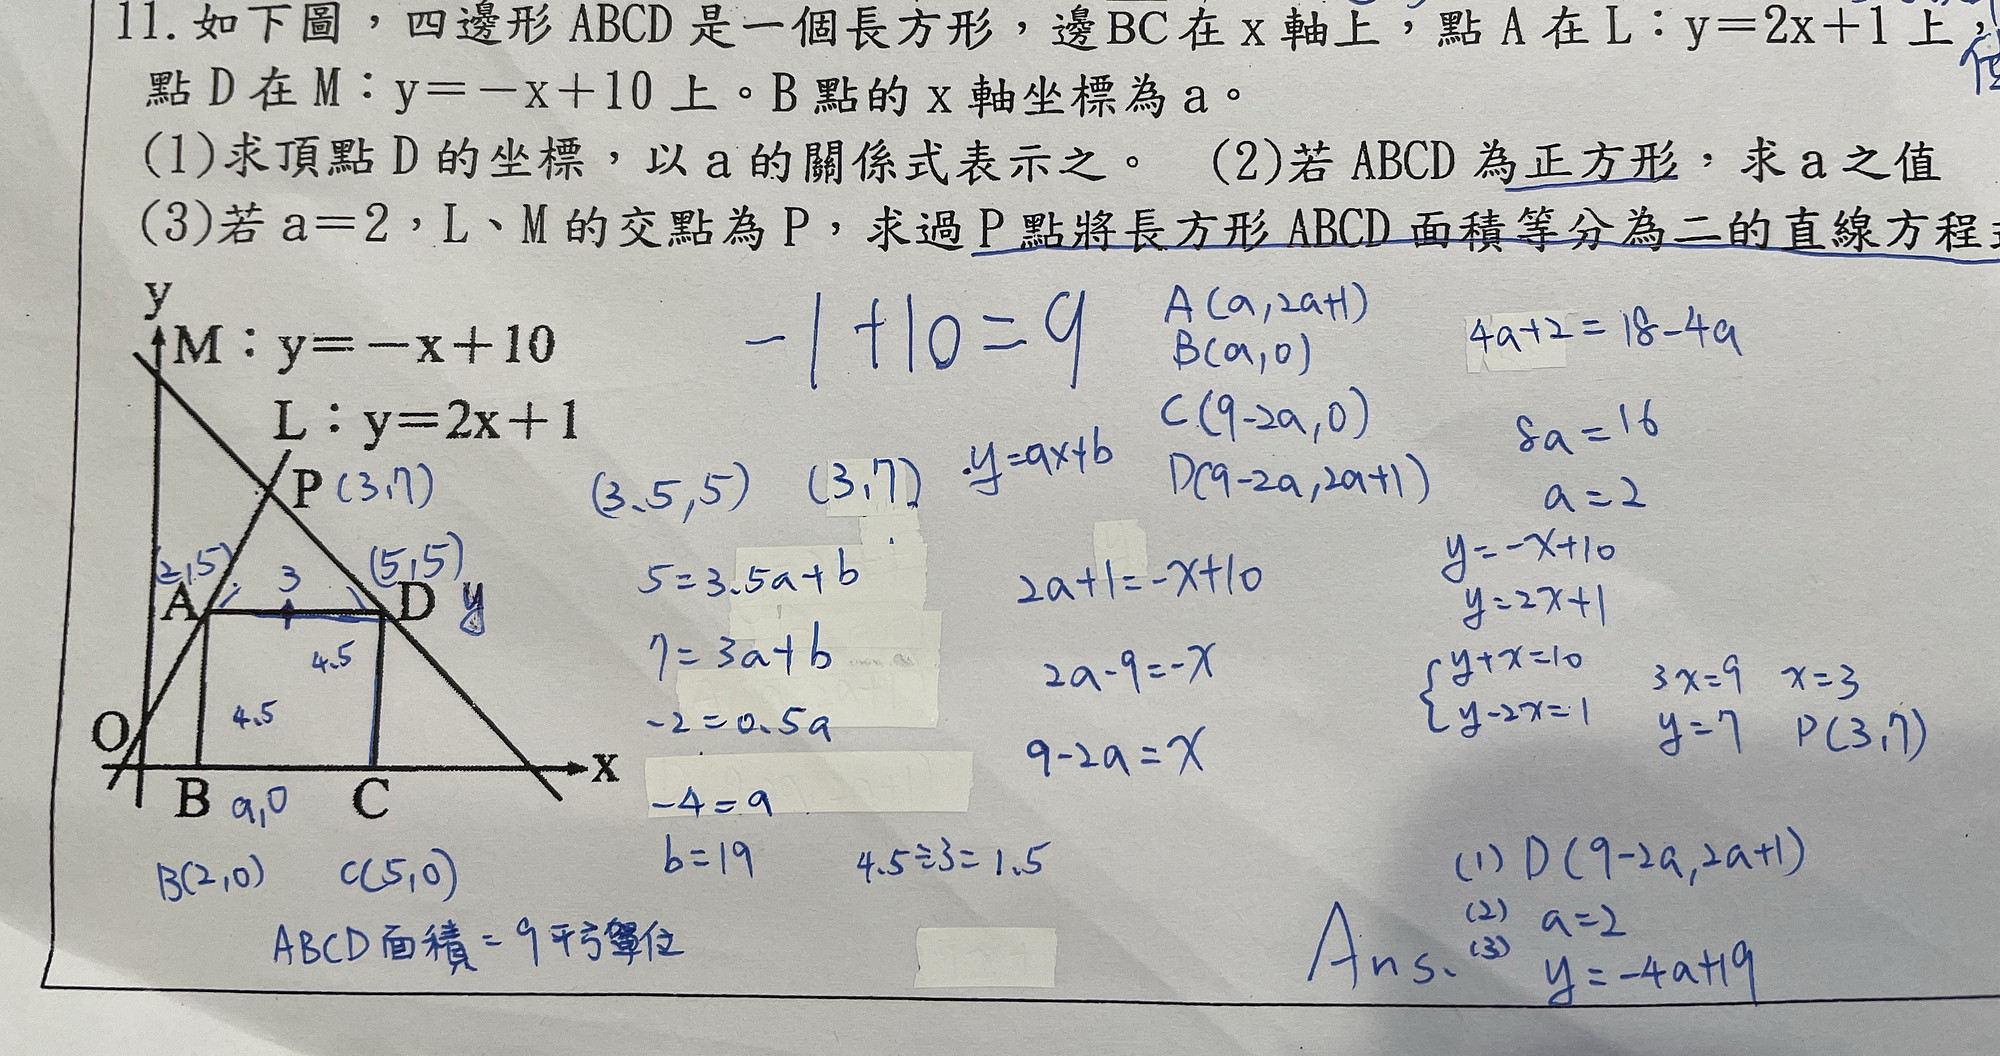 11. 如下圖，四邊形 ABCD 是一個長方形，邊BC在 x 軸上，點 A 在 L：y＝2x＋1 上，
點 D 在 M：y＝－x＋10 上。B 點的 x 軸坐標為 a。
(1)求頂點 D 的坐標，以 a 的關係式表示之。 (2)若 ABCD 為正方形，求 a 之值
(3)若 a＝2，L、M 的交點為 P，求過 P 點將長方形 ABCD 面積等分為二的直線方程
y
M：y＝－x＋10
L：y＝2x＋1
P (3,7)
(2,5)
3
(5,5)
A
D y
4.5
4.5
O
x
B a,0 C
B(2,0) C(5,0)
ABCD面積=9平方單位
-1+10=9
(3.5,5) (3,7) y=ax+b
5=3.5a+b
7=3a+b
-2=0.5a
-4=a
b=19 4.5÷3=1.5
A(a,2a+1)
B(a,0)
C(9-2a,0)
D(9-2a,2a+1)
2a+1=-x+10
2a-9=-x
9-2a=x
4a+2=18-4a
8a=16
a=2
y=-x+10
y=2x+1
y+x=10 3x=9 x=3
y-2x=1 y=7 P(3,7)
Ans.
(1) D(9-2a,2a+1)
(2) a=2
(3) y=-4a+19